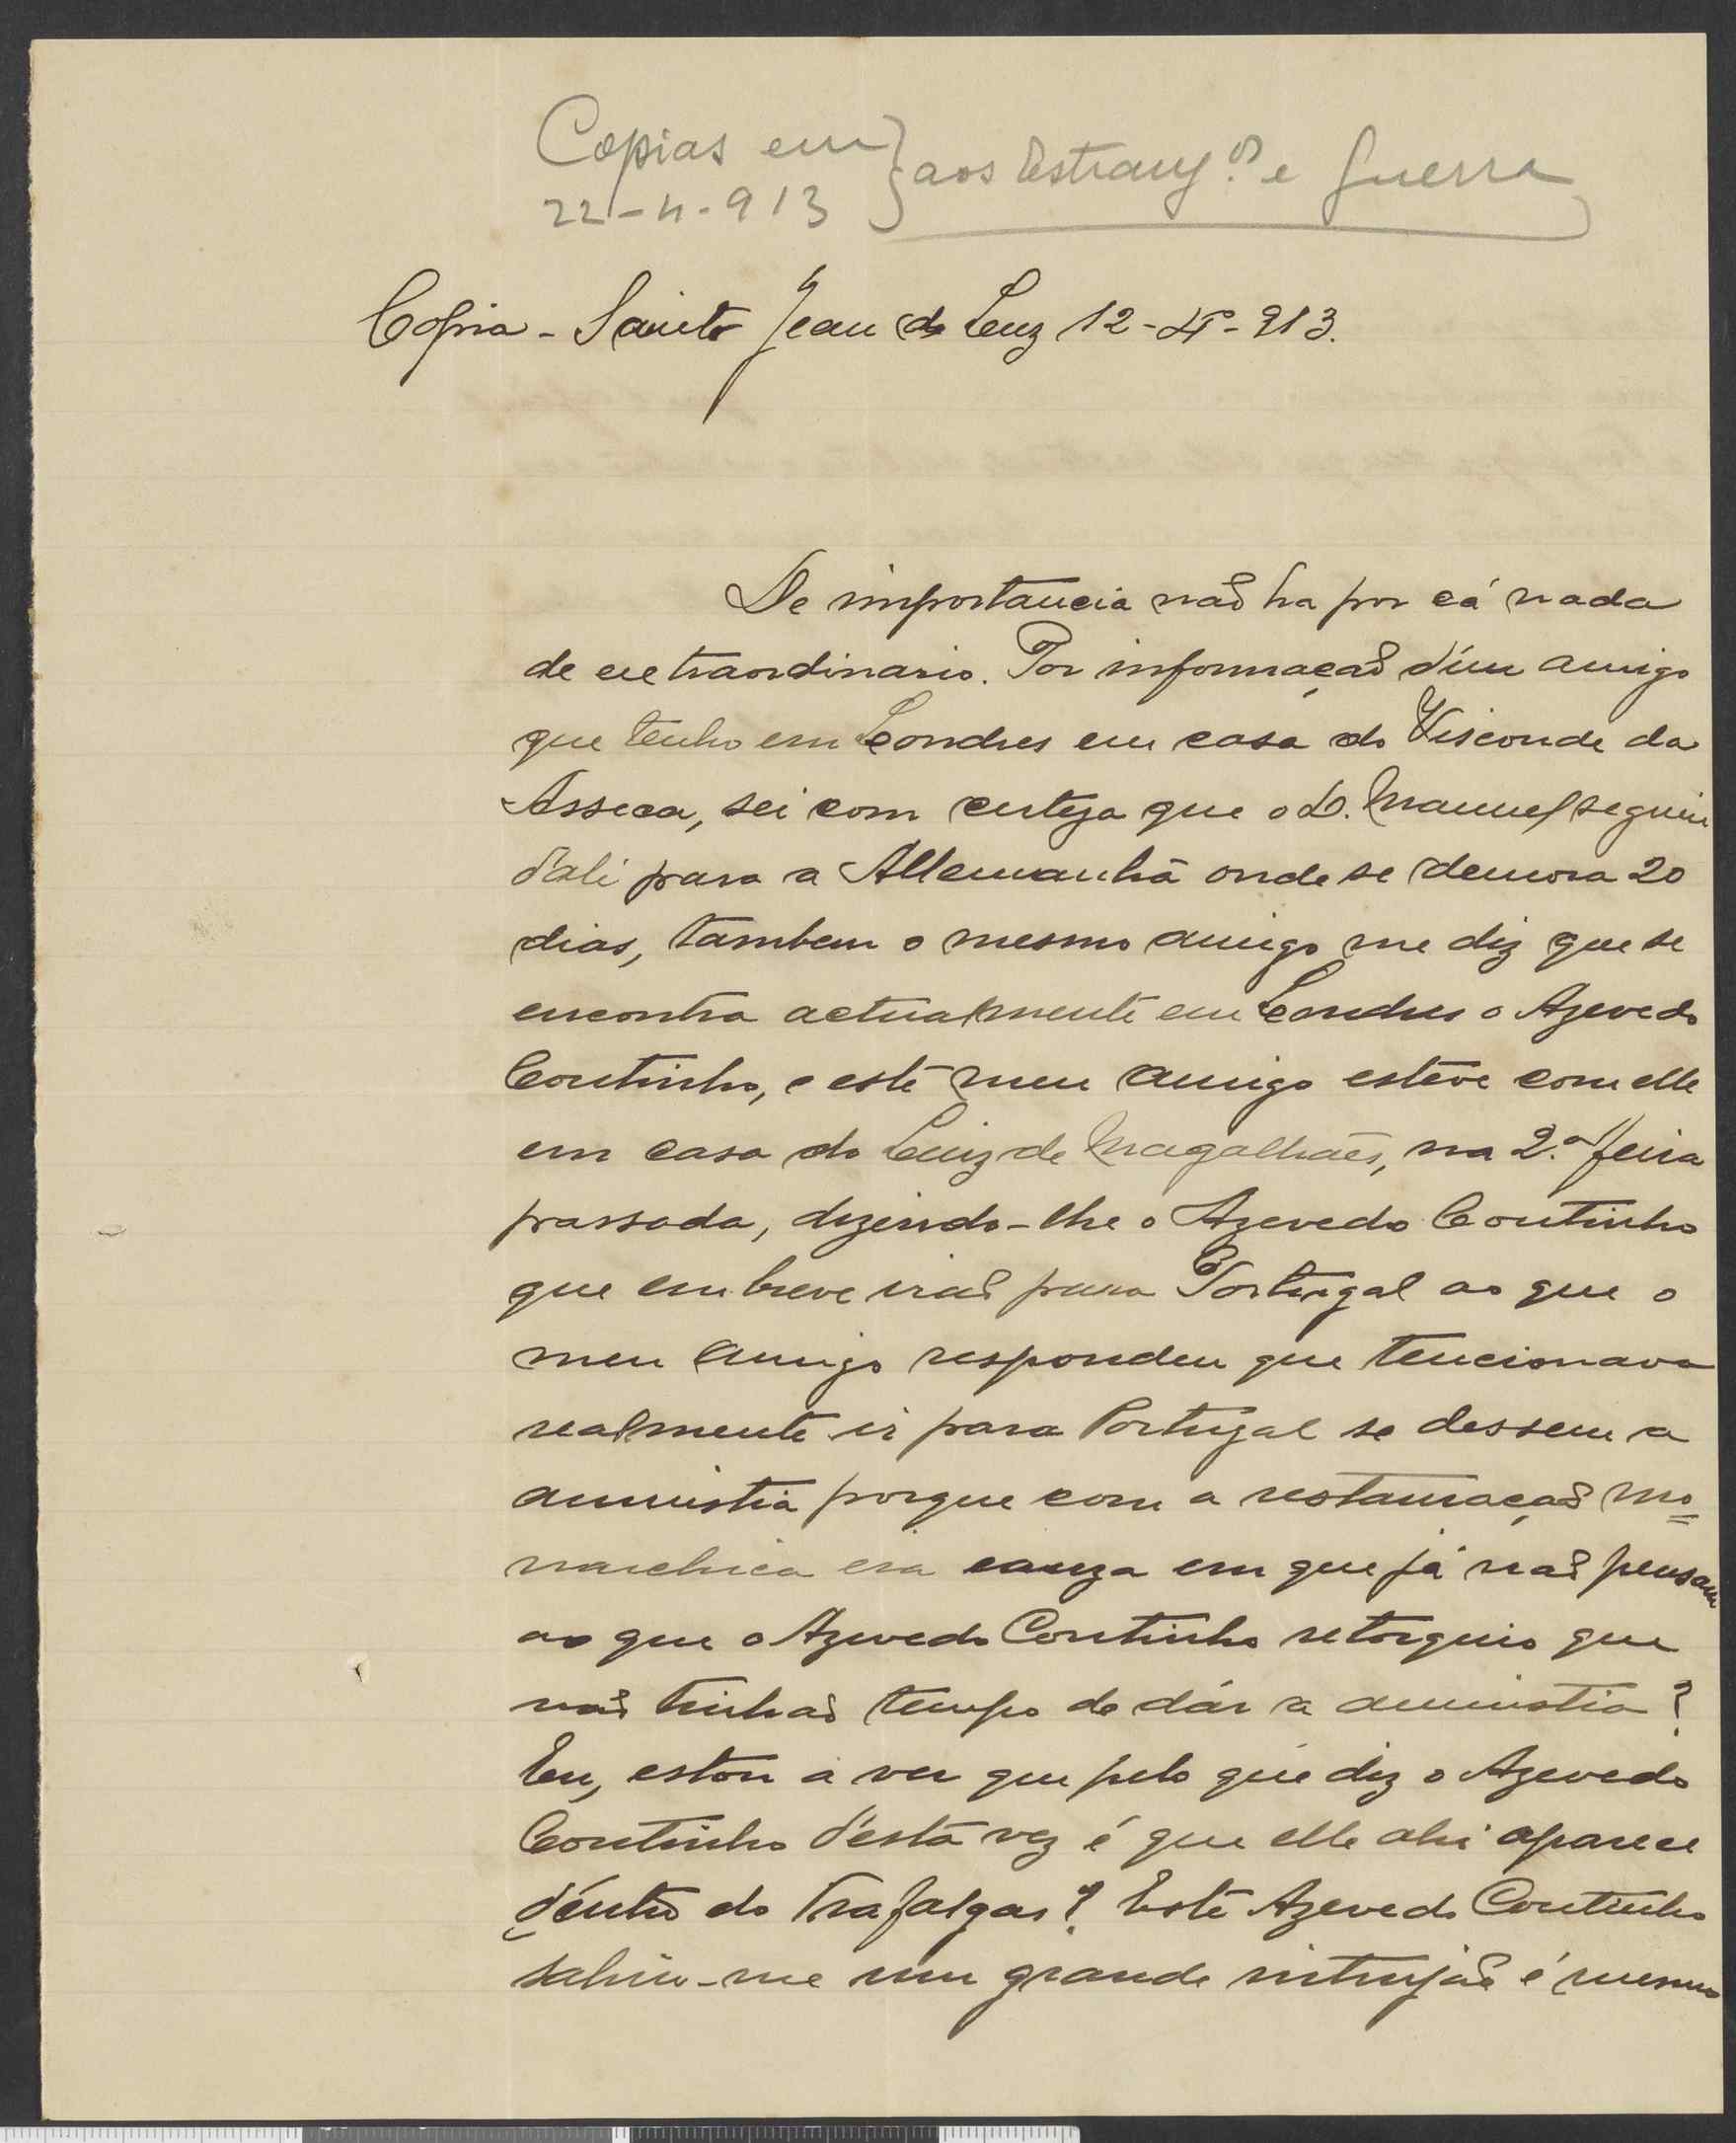 Copias em } aos Estrang.os e Guerra
22-4-913
Copia - Sainte Jean de Luz 12-4-913.
De importancia não ha por cá nada
de extraordinario. Por informação d'um amigo
que tenho em Londres em casa do Visconde da
Asseca, sei com certeza que o D. Manuel seguiu
d'ali para a Allemanhã onde se demora 20
dias, tambem o mesmo amigo me diz que se
encontra actualmente em Londres o Azevedo
Coutinho, e este meu amigo esteve com elle
em casa do Luiz de Magalhães, na 2.a feira
passada, dizendo-lhe o Azevedo Coutinho
que em breve irão para Portugal ao que o
meu amigo respondeu que tencionava
realmente ir para Portugal se dessem a
amnistia porque com a restauração mo=
narchica era cauza em que já não pensam
ao que o Azevedo Coutinho retorquio que
não tinhão tempo de dár a amnistia?
Eu, estou a ver que pelo que diz o Azevedo
Coutinho d'esta vez é que elle ahi aparece
déntro do Trafalgar? Este Azevedo Coutinho
sahiu-me um grande intrujão é mesmo